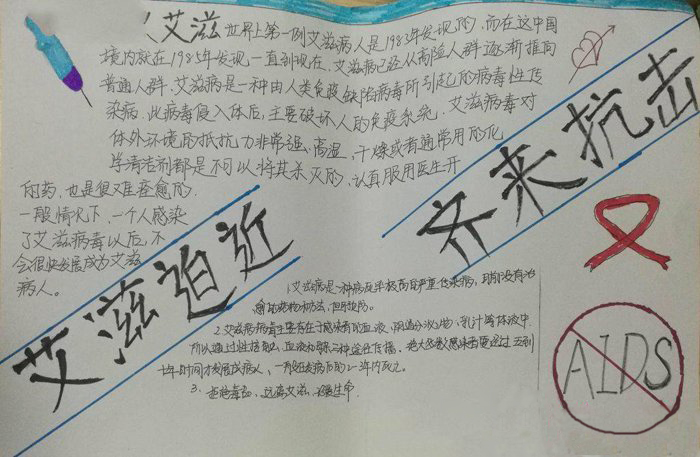 艾滋 世界上第一例艾滋病人是1985年发现的,而在这中国
境内就在1985年发现一直到现在,艾滋病已经从高险人群逐渐推向
普通人群,艾滋病是一种由人类免疫缺陷病毒所引起的病毒性传
染病,此病毒侵入体后,主要破坏人的免疫系统,艾滋病毒对
体外环境的抵抗力非常强,高温,干燥或者通常用的化
学清洁剂都是不可以将其杀灭的,认真服用医生开
的药,也是很难痊愈的.
一般情况下,一个人感染
了艾滋病毒以后,不
会很快发展成为艾滋
病人。
艾滋迫近
齐来抗击
1.艾滋病是一种病死率极高的严重传染病,目前没有治
愈的药物和方法,但可预防。
2.艾滋病病毒主要存在于感染者的血液、阴道分泌物、乳汁等体液中.
所以通过性接触、血液和母婴三种途径传播.绝大多数感染者要经过五到
十年时间才发展成病人,一般在发病后的2-3年内死亡。
3、拒绝毒品,远离艾滋,
生命.
AIDS